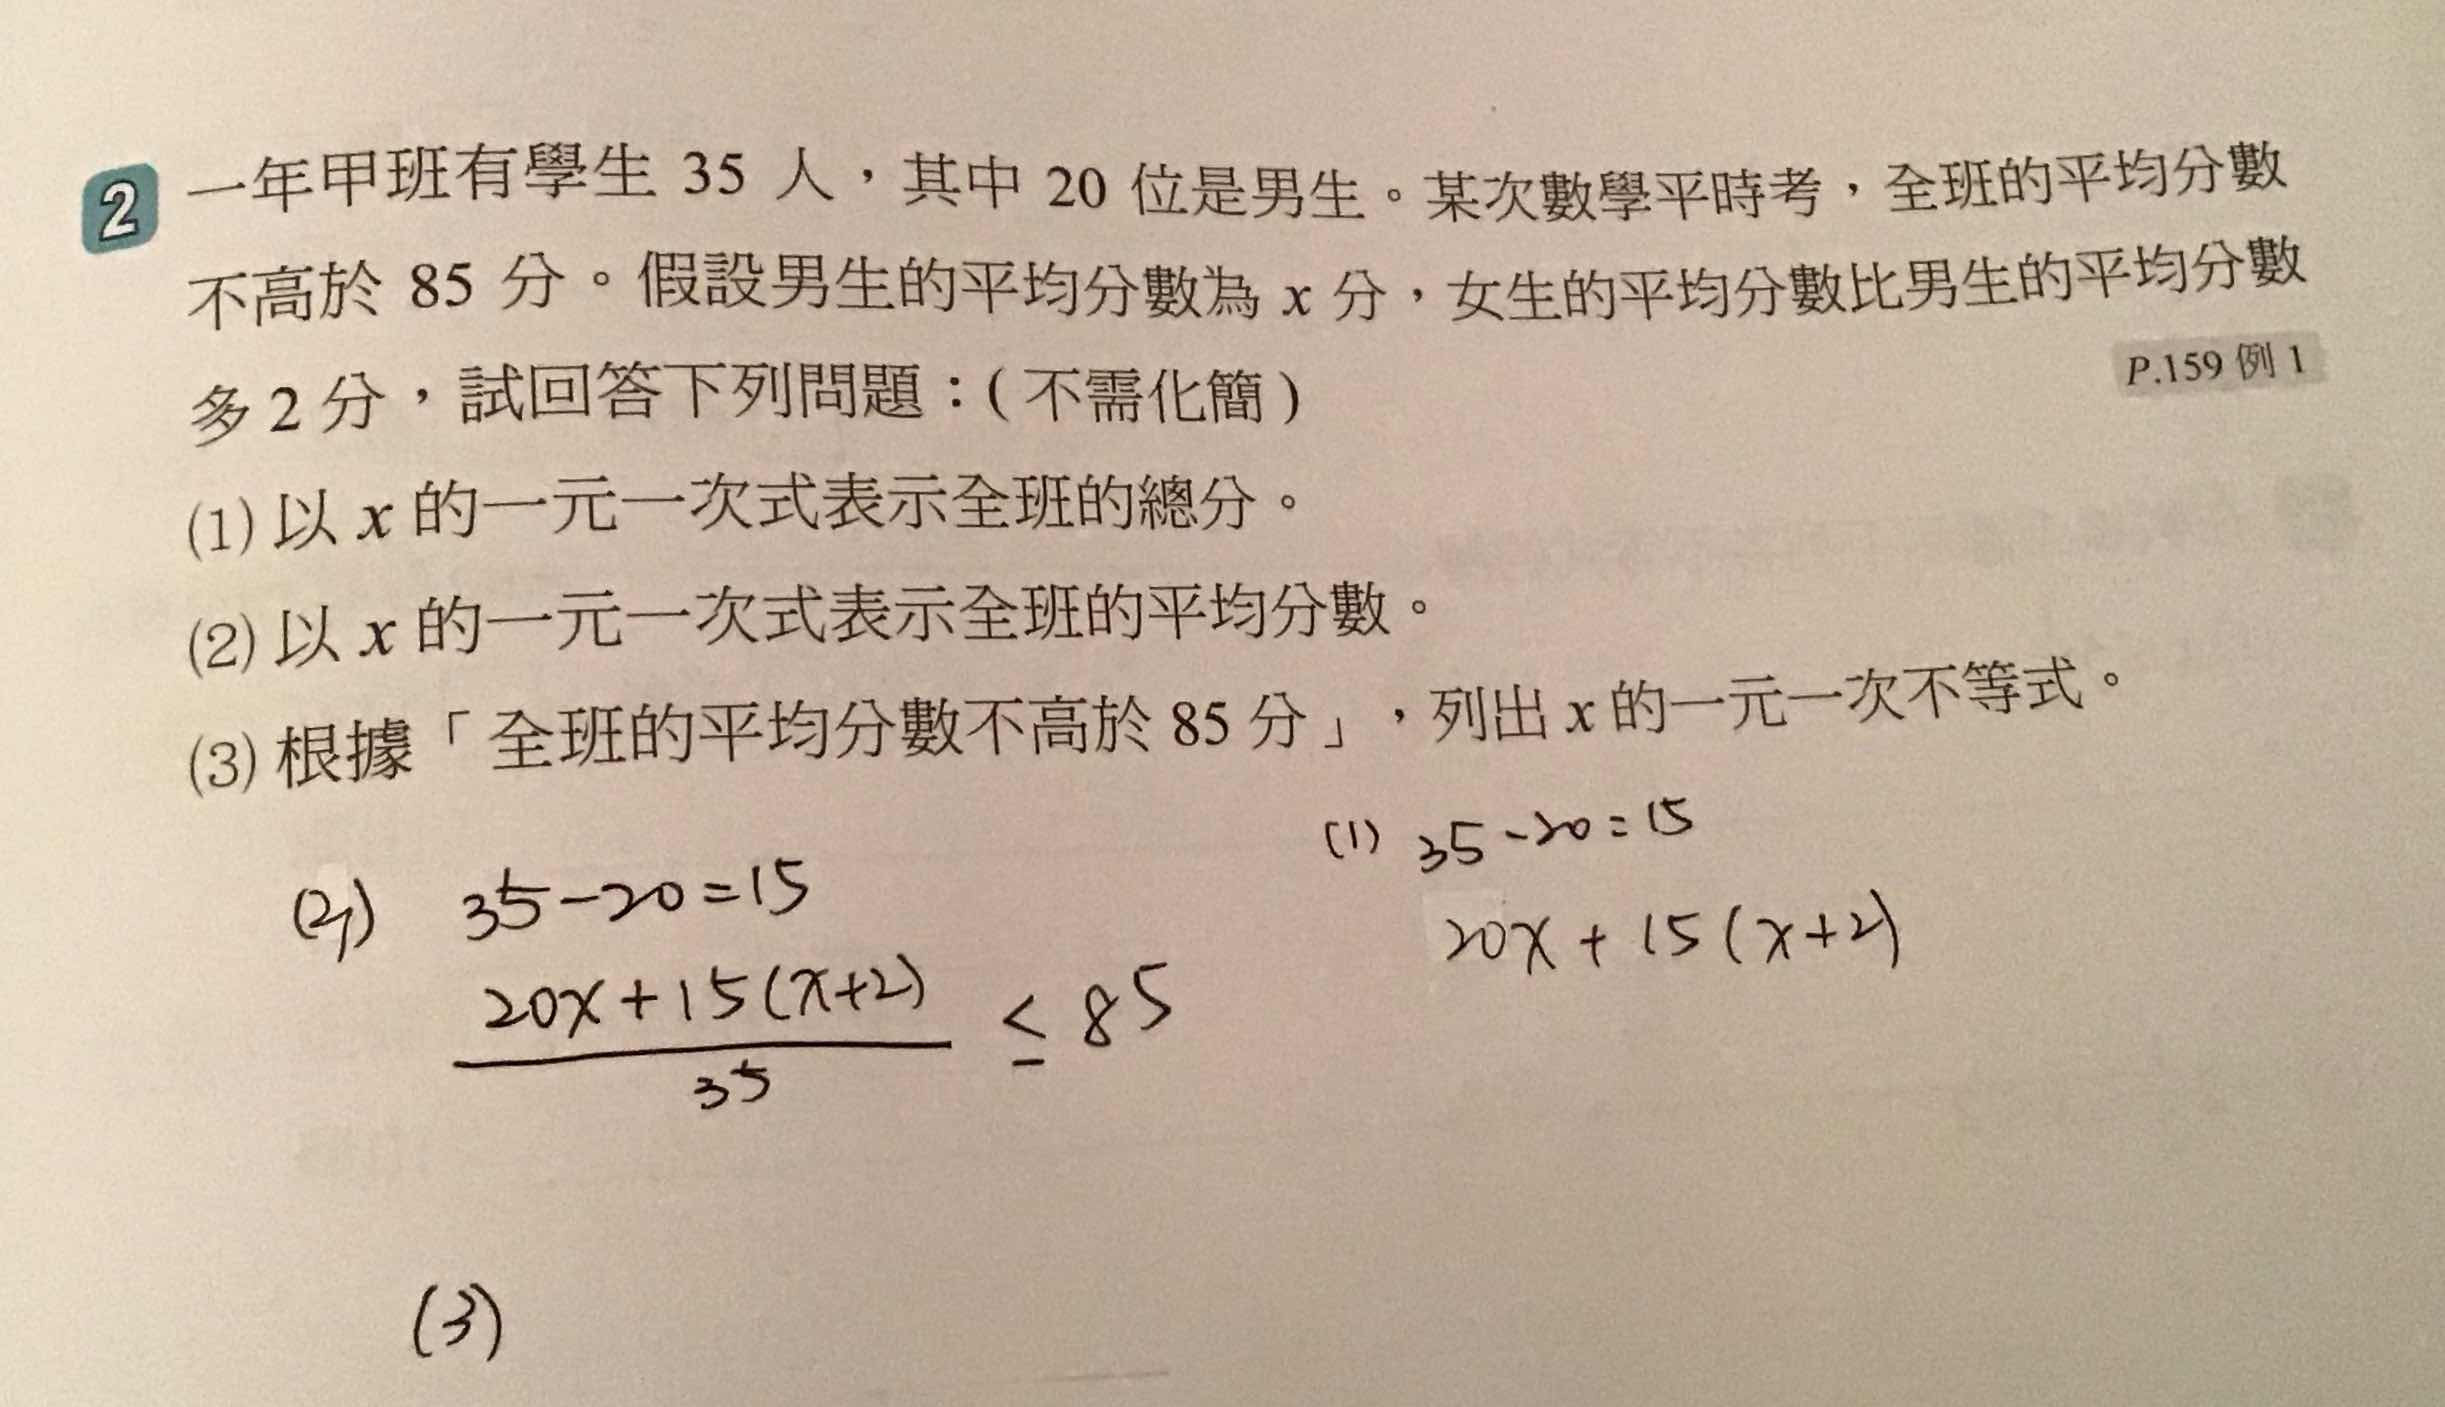 2 一年甲班有學生 35 人，其中 20 位是男生。某次數學平時考，全班的平均分數
不高於 85 分。假設男生的平均分數為 x 分，女生的平均分數比男生的平均分數
多 2 分，試回答下列問題：( 不需化簡 )
P.159 例 1
(1) 以 x 的一元一次式表示全班的總分。
(2) 以 x 的一元一次式表示全班的平均分數。
(3) 根據「全班的平均分數不高於 85 分」，列出 x 的一元一次不等式。
(1) 35-20=15
20x+15(x+2)
(2) 35-20=15
20x+15(x+2)
≤ 85
35
(3)